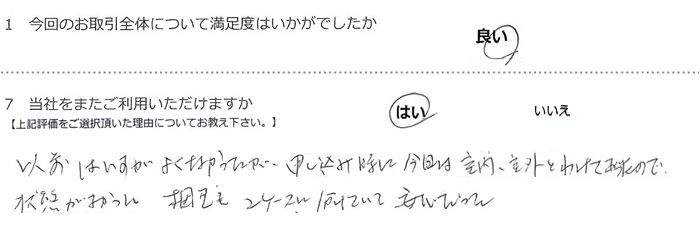 1 今回のお取引全体について満足度はいかがでしたか
良い
7 当社をまたご利用いただけますか
はい いいえ
【上記評価をご選択頂いた理由についてお教え下さい。】
以前 はいすが よくなかったが、申し込み時に 今回は 室内、室外とわけてあったので、
状態がよかった 梱包も 2ケースに 分けていて